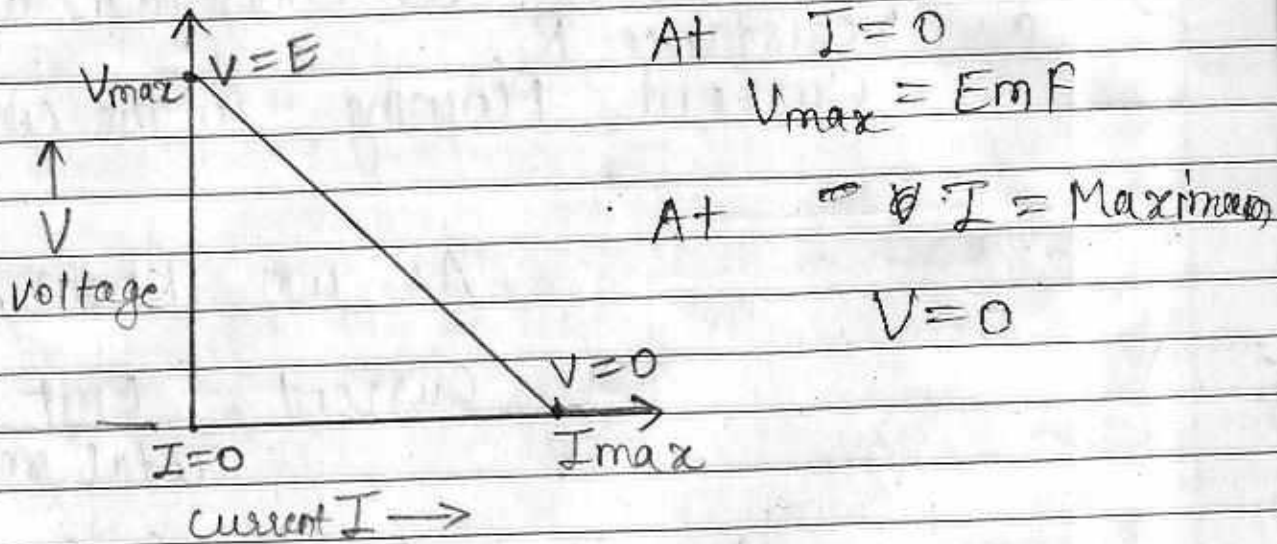 V=E
Vmax
↑
V
voltage
V=0
I=0
Imax
current I →
At I=0
Vmax = EmF
At I = Maximum
V=0